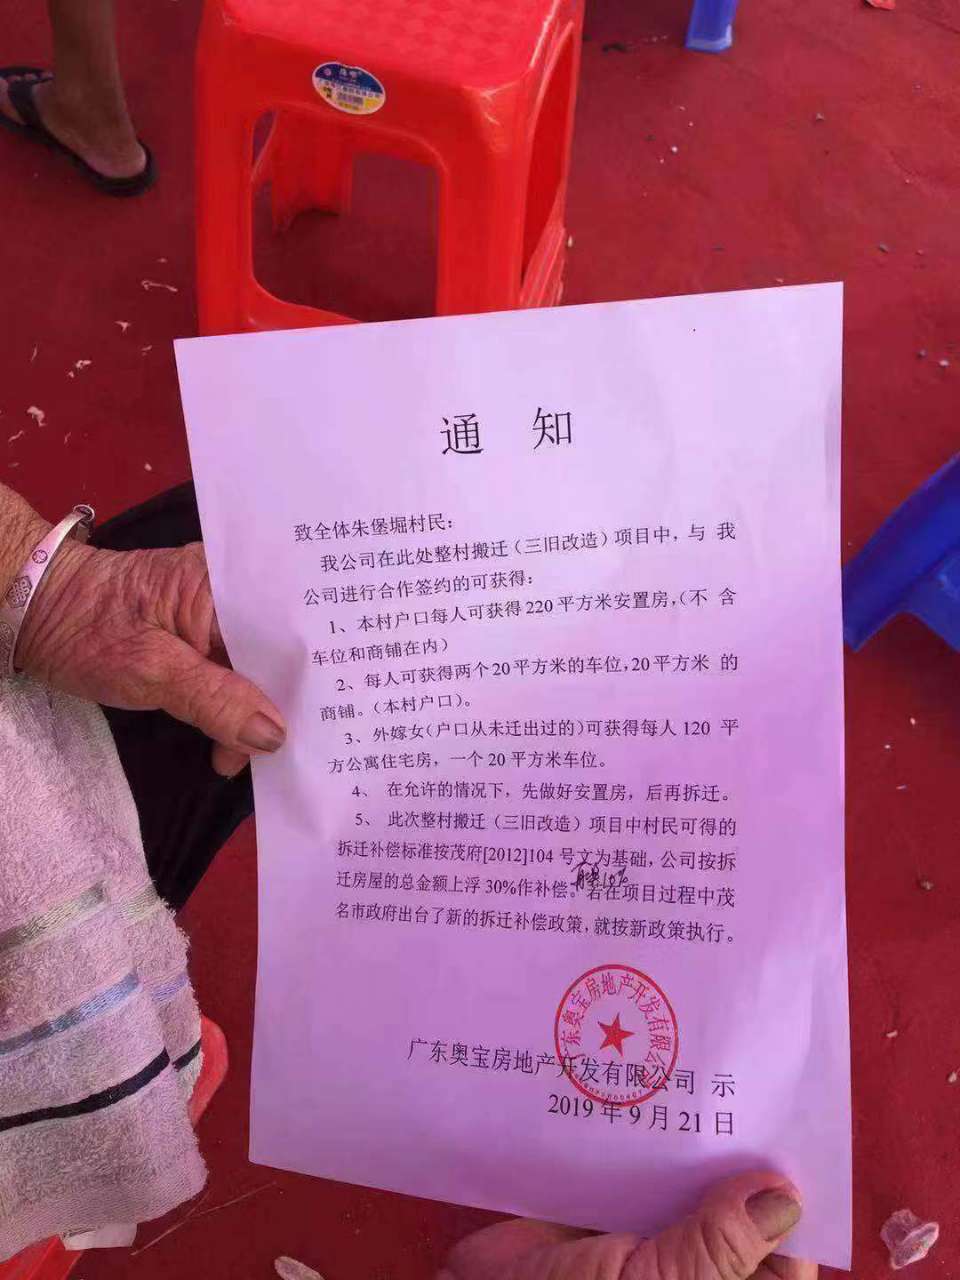 通 知
致全体朱堡堀村民：
我公司在此处整村搬迁（三旧改造）项目中，与 我
公司进行合作签约的可获得：
1、本村户口每人可获得220平方米安置房，（不 含
车位和商铺在内）
2、每人可获得两个20平方米的车位，20平方米 的
商铺。（本村户口）。
3、外嫁女（户口从未迁出过的）可获得每人120 平
方公寓住宅房，一个20平方米车位。
4、 在允许的情况下，先做好安置房，后再拆迁。
5、 此次整村搬迁（三旧改造）项目中村民可得的
拆迁补偿标准按茂府[2012]104号文为基础，公司按拆
迁房屋的总金额上浮30%作补偿。若在项目过程中茂
名市政府出台了新的拆迁补偿政策，就按新政策执行。
广东奥宝房地产开发有限公司
广东奥宝房地产开发有限公司 示
2019年9月21日